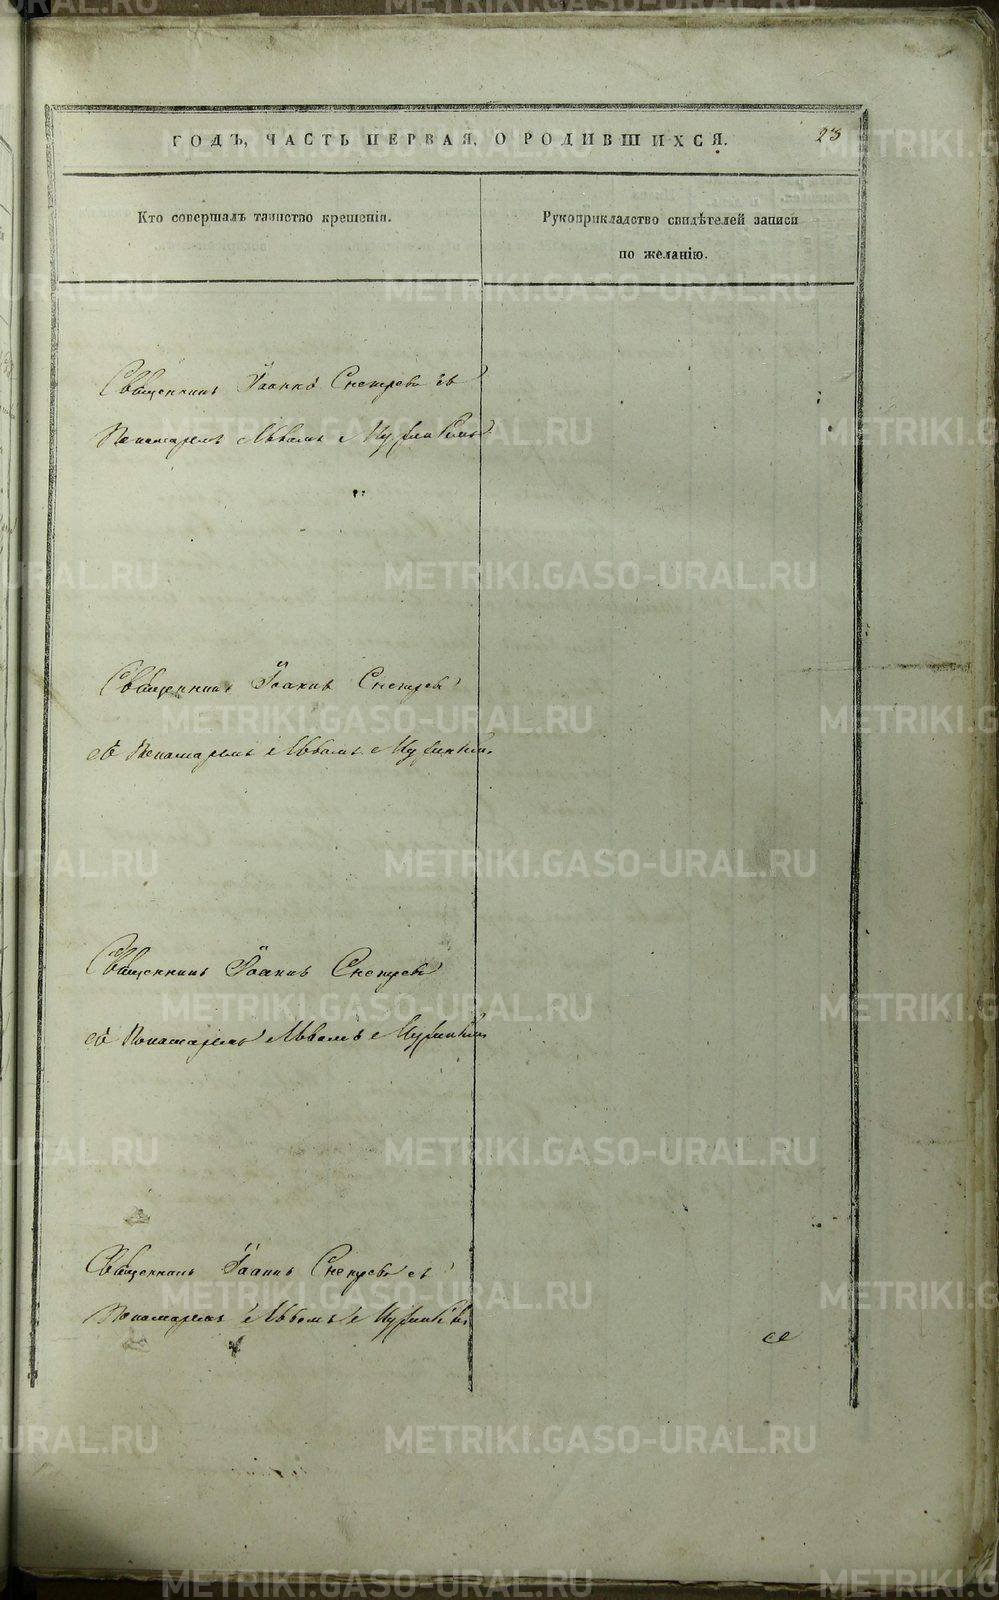 ГОДЪ, ЧАСТЬ ПЕРВАЯ, О РОДИВШИХСЯ.
23
Кто совершалъ таинство крещенія.
Рукоприкладство свидѣтелей записи
по желанію.
Священникъ Іоаннъ Снегирев съ
Пономаремъ Львомъ
Священникъ Іоаннъ Снегирев
съ Пономаремъ Львомъ
Священникъ Іоаннъ Снегирев
съ Пономаремъ Львомъ
Священникъ Іоаннъ Снегирев съ
Пономаремъ Львомъ
METRIKI.GASO-URAL.RU